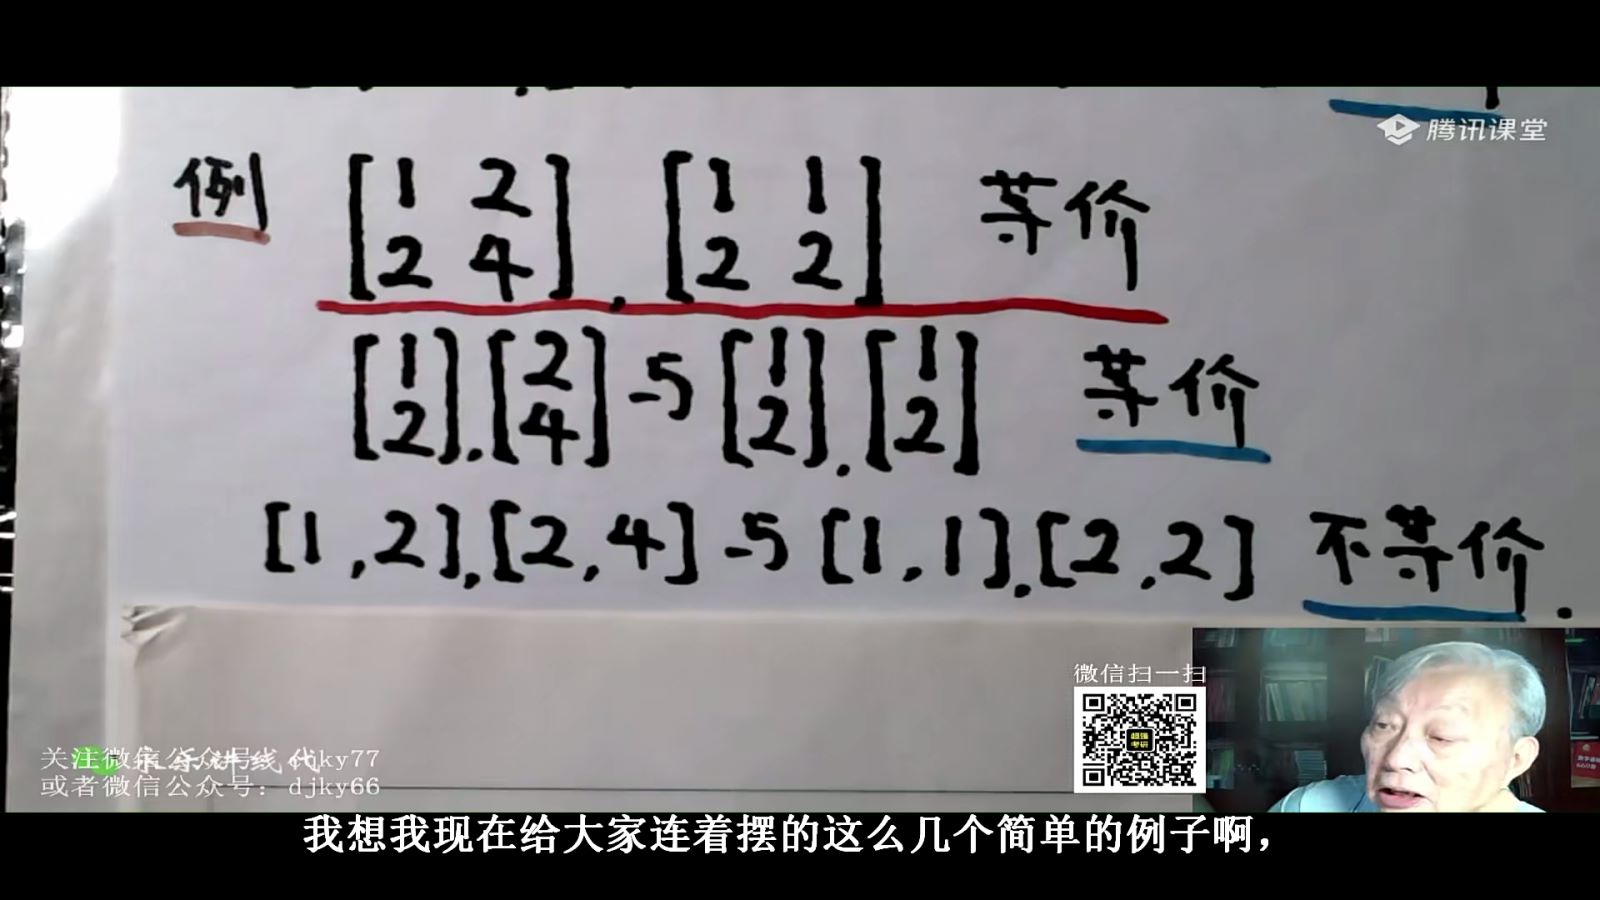 腾讯课堂
例 [1 2 2 4], [1 1 2 2] 等价
[1 2], [2 4] 与 [1 2], [1 2] 等价
[1,2], [2,4] 与 [1,1], [2,2] 不等价.
微信扫一扫
超强考研
关注微信公众号
ky77
线代
或者微信公众号：djky66
我想我现在给大家连着摆的这么几个简单的例子啊，